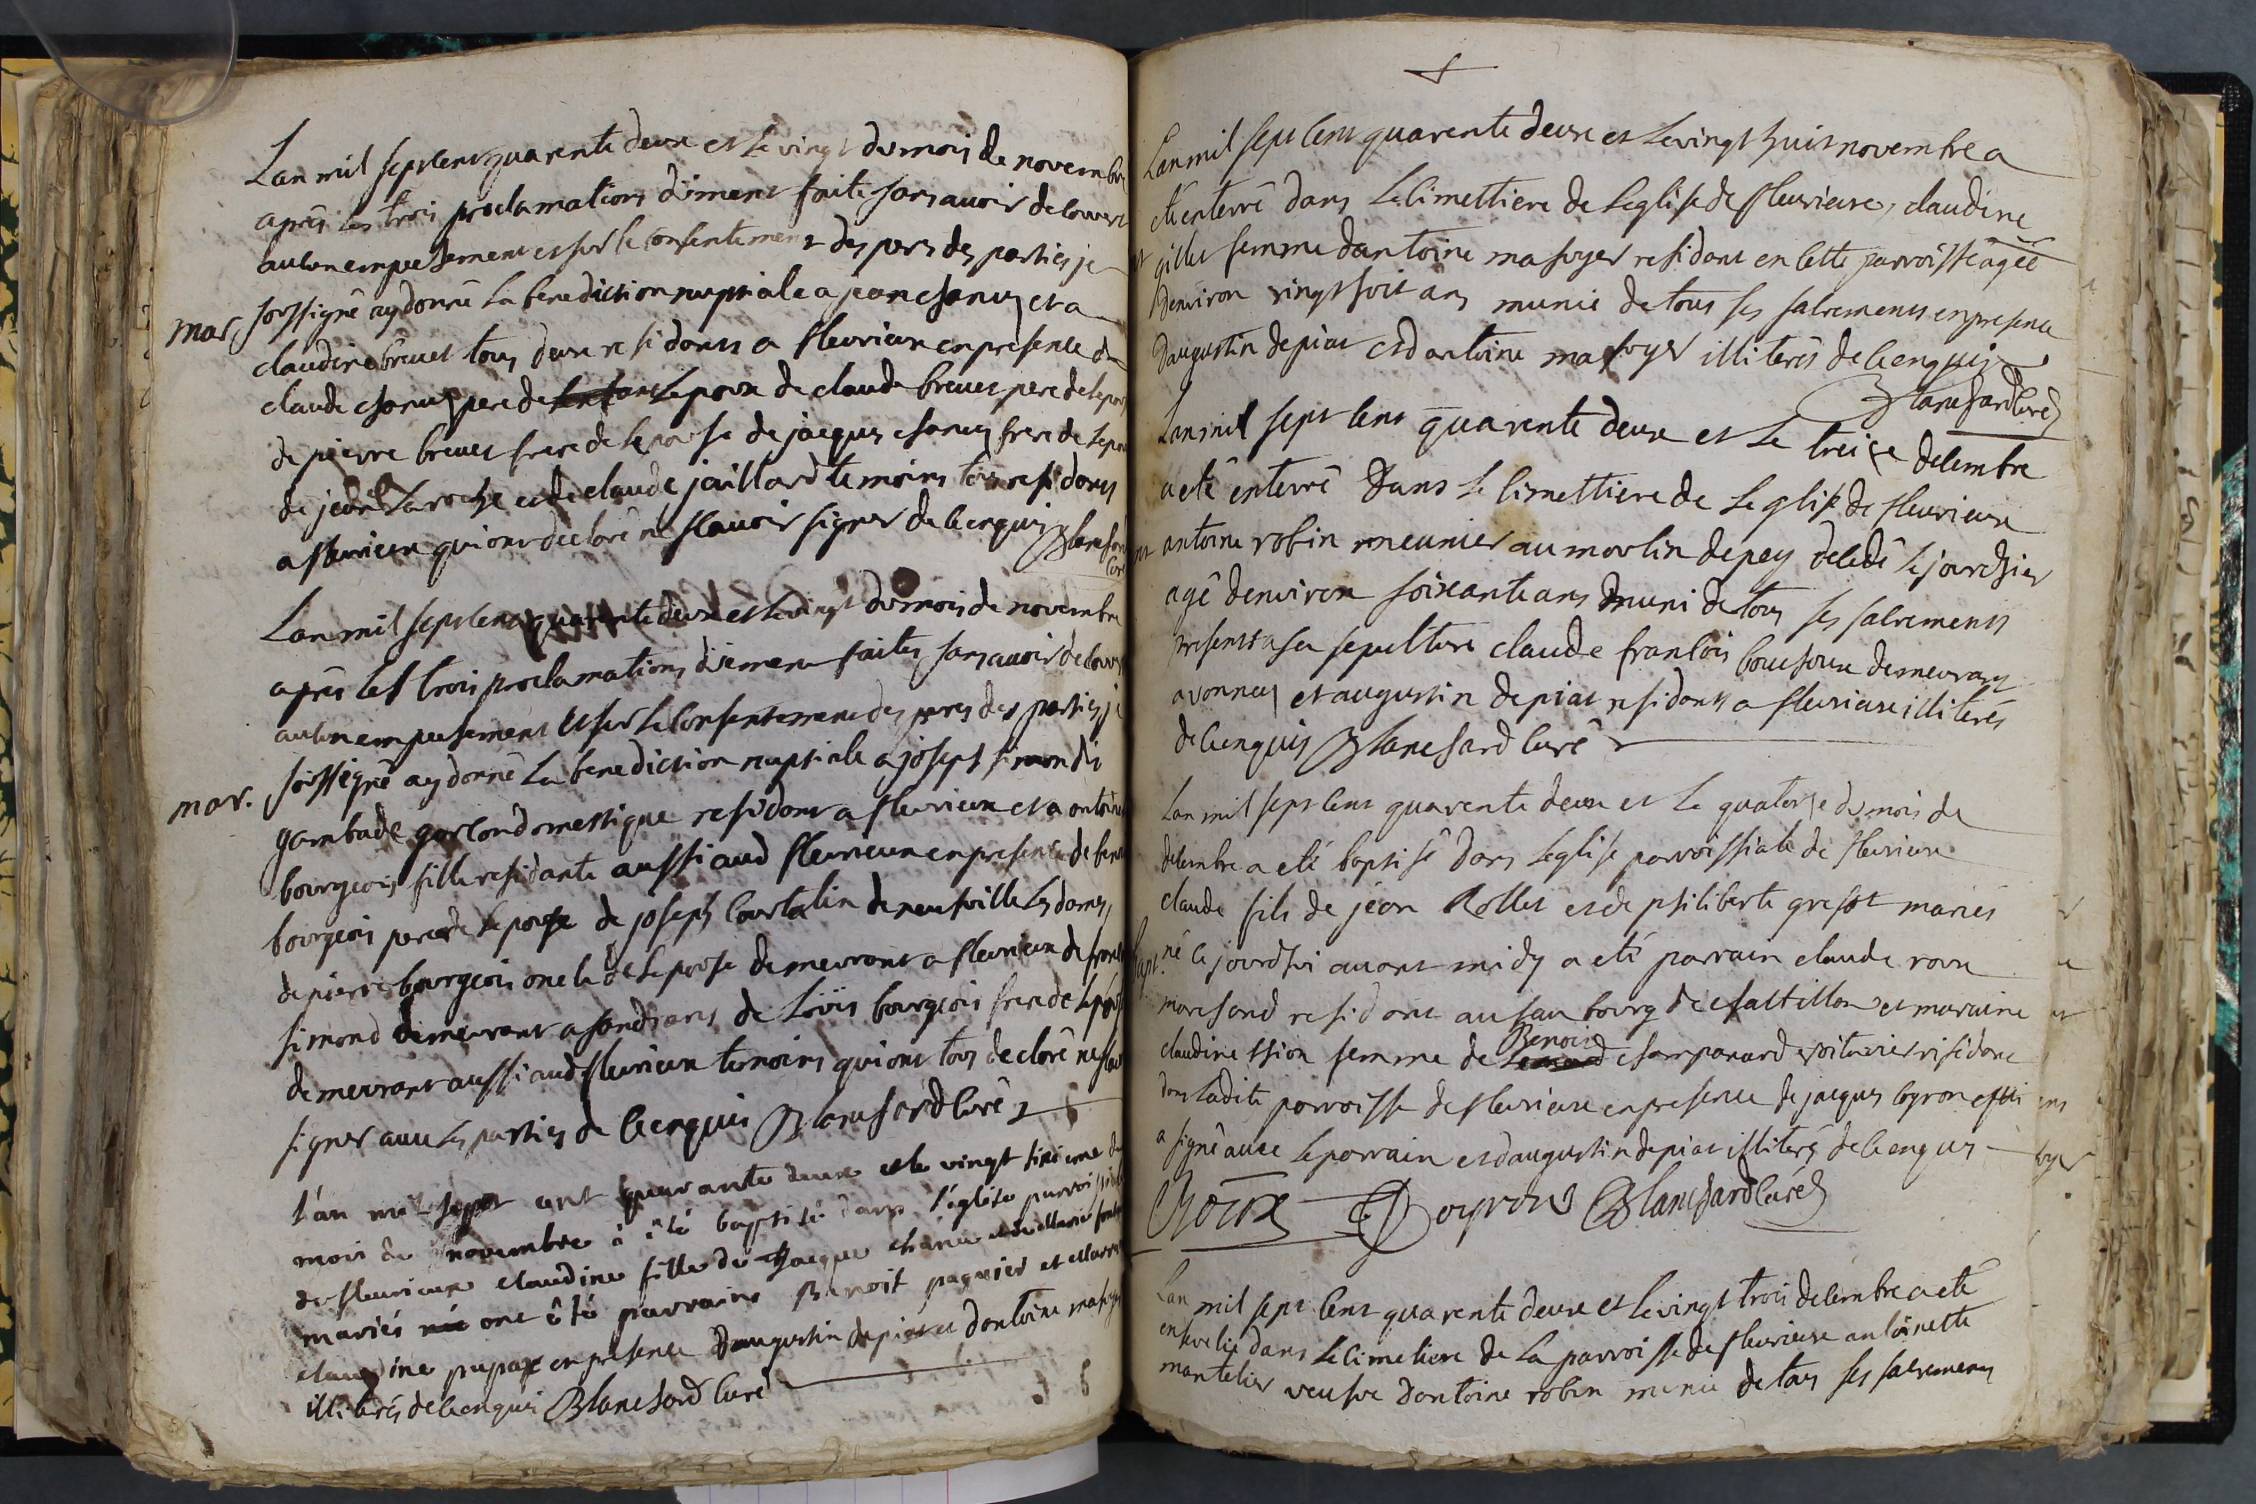 Lan mil sept cent quarente deux et le vingt du mois de novembre
après les trois proclamations düment faite sans avoir decouvert
aucun empechement et sur le consentement des peres des parties je
soussigné ay donné la benediction nuptiale a jean chanuz et a
mar.
claudine brevet tous deux residants a fleurieux en presence de
claude chanuz pere de lepoux de claude brevet pere de lepouse
de pierre brevet frere de lepouse de jacques chanuz frere de lepoux
de jean Laroche et de claude jaillard temoins tous residants
a fleurieux qui ont declaré ne scavoir signer de ce enquis Blanchard
curé
Lan mil sept cent quarente deux et le vingt du mois de novembre
après les trois proclamations düement faites sans avoir decouvert
aucun empechement et sur le consentement des peres des parties je
soussigné ay donné la benediction nuptiale a joseph simon dit
mar.
gambade garcon domestique residant a fleurieux et a antoinette
bourgeois fille residante aussi aud fleurieux en presence de benoit
bourgeois pere de lepouse de joseph courtalin de neufville les dames,
de pierre bourgeois oncle de lepouse demeurant a fleurieux de
simond demeurant a sandrans de Loüis bourgeois frere de lepouse
demeurant aussi aud fleurieux temoins qui ont tous declaré ne scavoir
signer avec les parties de ce enquis Blanchard curé
l'an mil sept cent quarante deux et le vingt sixieme du
mois de novembre à été baptisé dans l'église parroissiale
de fleurieux claudine fille de Jacque chanu et de
mariés ont été parrains Benoit paquier et
claudine papax en presence d'augustin depiat et d'antoine masoyer
illiterés de ce enquis Blanchard curé
Lan mil sept cent quarente deux et le vingt huit novembre a
eté enterré dans le cimettiere de Leglise de fleurieux, claudine
gillet femme d'antoine masoyer residant en cette parroisse âgée
denviron vingt huit ans munie de tous ses sacrements en presence
d'augustin depiat et d'antoine masoyer illiterés de ce enquis
Blanchard curé
Lan mil sept cent quarente deux et le treize decembre
a eté enterré dans le cimettiere de Leglise de fleurieux
antoine robin meunier au moulin de pey decedé le jour d'hier
agé denviron soixante ans muni de tous ses sacrements
presents a sa sepulture claude francois bouchoux demeurant
a vonnas et augustin depiat residants a fleurieux illiterés
de ce enquis Blanchard curé
Lan mil sept cent quarente deux et le quatorze du mois de
decembre a eté baptisé dans Leglise parroissiale de fleurieux
claude fils de jean Rollet et de philiberte grefot mariés
bapt.
né ce jourdhui avant midy a eté parrain claude roux
marchand residant au faubourg de chattillon et marraine
claudine tsion femme de Benoit champanard residant
dans ladite parroisse de fleurieux en presence de jacques boyron qui
a signé avec le parrain et d'augustin depiat illiteré de ce enquis
Roux Boyron Blanchard curé
Lan mil sept cent quarente deux et le vingt trois decembre a eté
ensevelie dans le cimetiere de la parroisse de fleurieux antoinette
mantelier veufve d'antoine robin munie de tous ses sacrements